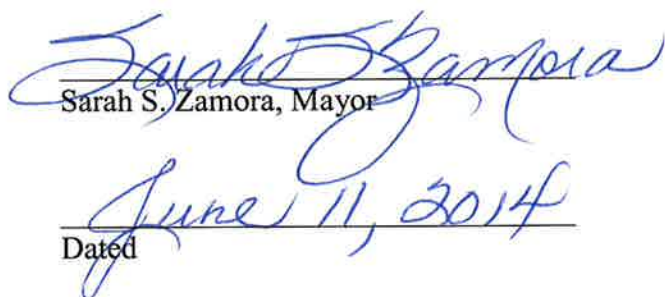 Sarah S Zamora
Sarah S. Zamora, Mayor
June 11, 2014
Dated